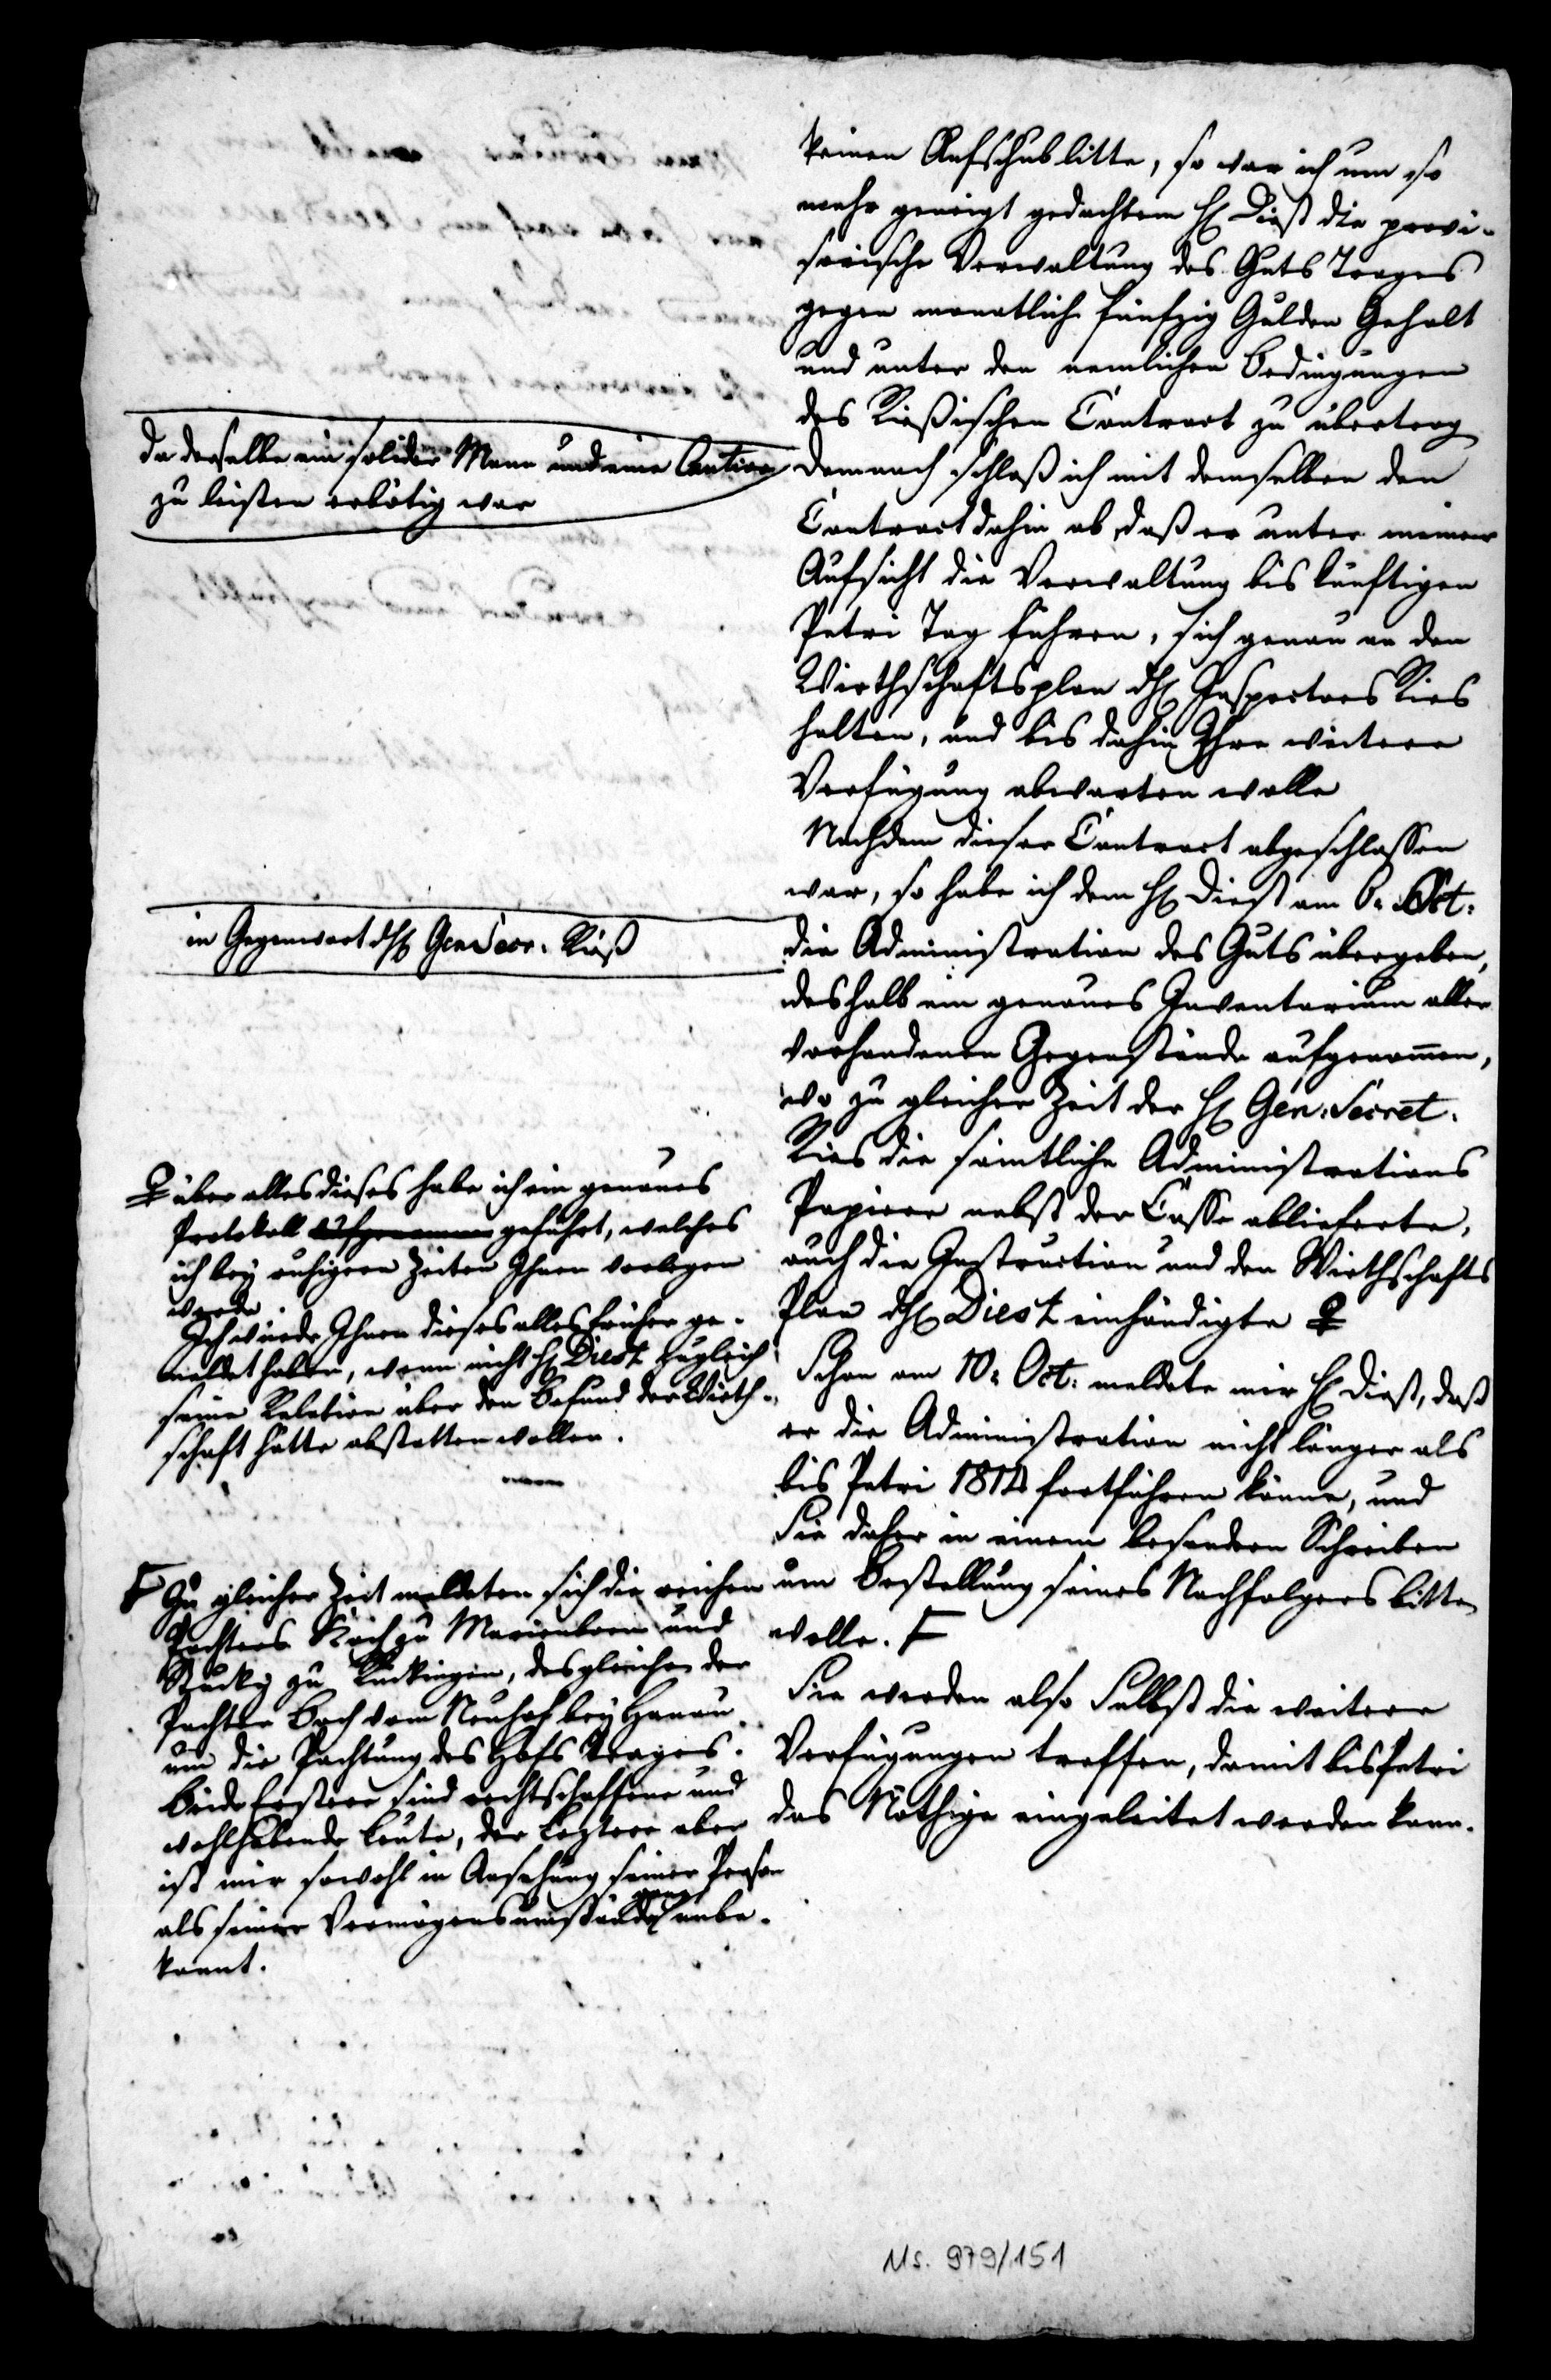 keinen Aufschub litte, so war ich um so
mehr geneigt gedachtem H. Diest die provi-
sorische Verwaltung des Guts Trages
gegen monatlich fünfzig Gulden Gehalt
und unter den nemlichen Bedingungen
des Rießischen Contract zu übertrag
da derselbe ein solider Mann und eine Caution
zu leisten erbötig war
Demnach schloß ich mit demselben den
Contract dahin ab, daß er unter meiner
Aufsicht die Verwaltung bis künftigen
Petri Tag führen, sich genau an den
Wirthschaftsplan dH. Inspectors Ries
halten, und bis dahin Ihre weitere
Verfügung abwarten wolle
Nachdem dieser Contract abgeschlossen
war, so habe ich dem H. Diest am 6. Oct.
in Gegenwart dH. Gen Secr. Rieß
die Administration des Guts übergeben,
deshalb ein genaues Inventarium aller
vorhandenen Gegenstände aufgenommen,
wo zu gleicher Zeit der H. Gen. Secret.
Ries die sämtliche Administrations
Papiere nebst der Casse ablieferte,
auch die Instruction und den Wirthschafts
Plan dH. Diest einhändigte ♀
♀ über alles dieses habe ich ein genaues
Protokoll aufgenommen geführt, welches
ich bey ruhigern Zeiten Ihnen vorlegen
werde.
Ich würde Ihnen dieses alles früher ge-
meldet haben, wenn nicht H. Diest zugleich
seine Relation über den Befund der Wirth-
schaft hätte abstatten wollen.
Schon am 10. Oct. meldete mir H. Diest, daß
er die Administration nicht länger als
bis Petri 1814 fortführen könne, und
Sie daher in einem besondern Schreiben
um Bestellung seines Nachfolgers bitten
wolle. F
F Zu gleicher Zeit meldeten sich die reichen
Pachters Koch zu Marienborn und
Stucky zu Rückingen, desgleichen der
Pachter Bach vom Neuhof bey Hanau
um die Pachtung des Hofs Trages.
Beide Erstere sind rechtschaffene und
wohlhabende Leute, der leztere aber
ist mir sowohl in Ansehung seiner Person
als seiner Vermögensumstände ganz unbe-
kannt.
Sie werden also Selbst die weitere
Verfügungen treffen, damit bis Petri
das Nöthige eingeleitet werden kann.
Ms. 979/151